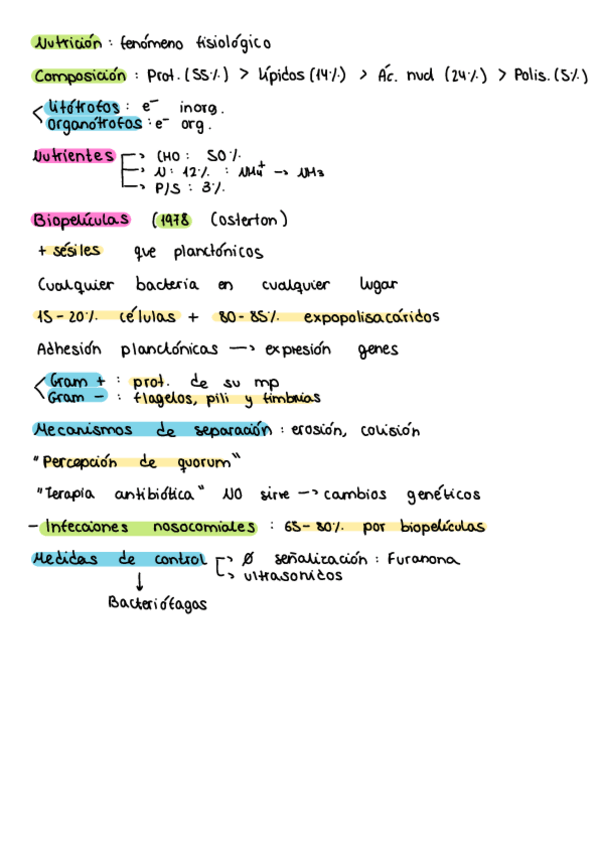 Nutrición : fenómeno fisiológico
Composición : Prot. (55%) > Lípidos (14%) > Ác. nucl (24%) > Polis. (5%)
Litótrofos : e⁻ inorg.
Organótrofos : e⁻ org.
Nutrientes → CHO : 50%
→ N : 12% : NH₄⁺ → NH₃
→ P/S : 3%
Biopelículas (1978 Costerton)
+ sésiles que planctónicos
Cualquier bacteria en cualquier lugar
15-20% células + 80-85% expopolisacáridos
Adhesión planctónicas → expresión genes
Gram + : prot. de su mp
Gram - : flagelos, pili y fimbrias
Mecanismos de separación : erosión, colisión
"Percepción de quorum"
"Terapia antibiótica" NO sirve → cambios genéticos
- Infecciones nosocomiales : 65-80% por biopelículas
Medidas de control → Ø señalización : Furanona
→ ultrasonidos
↓
Bacteriófagos